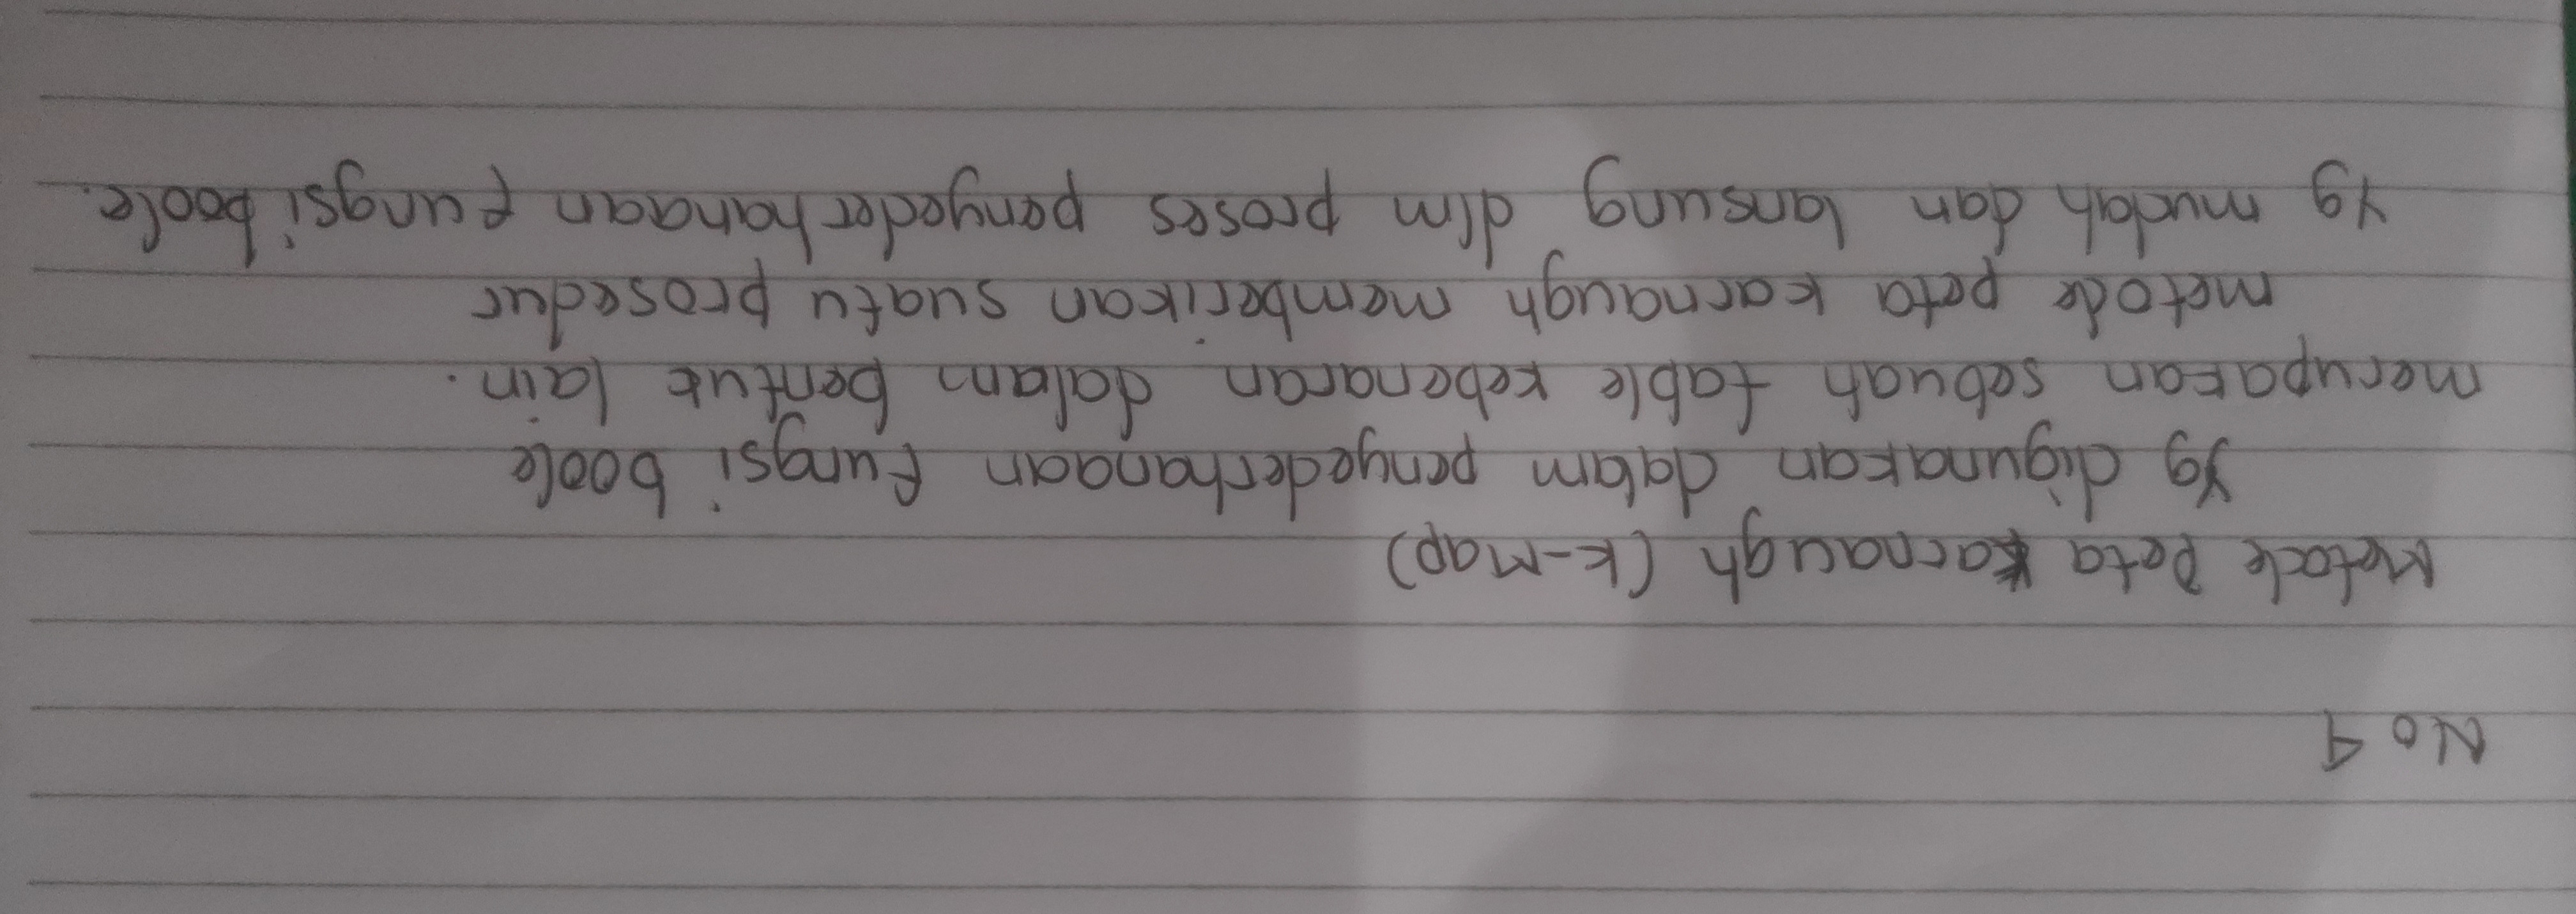 No 4
Metode Peta Karnaugh (K-Map)
Yg digunakan dalam penyederhanaan fungsi boole
merupakan sebuah table kebenaran dalam bentuk lain.
metode peta karnaugh memberikan suatu prosedur
yg mudah dan lansung dlm proses penyederhanaan fungsi boole.